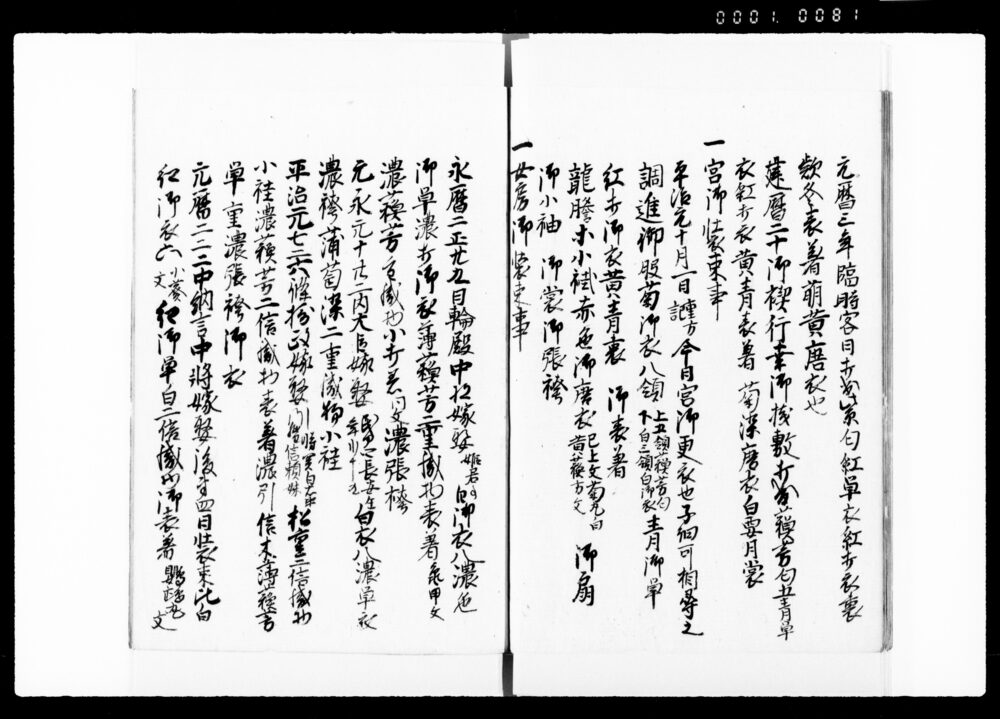 0001.0081
元暦三年臨時客日打出紫匂紅単衣紅打衣裏
款冬表着萌黄唐衣也
建暦二十御禊行幸御桟敷打出蘇芳匂五青単
衣紅打衣黄青表着 菊染唐衣白要月裳
一宮御装束事
平治元十月一日 今日宮御更衣也子細可相尋之
調進御服菊御衣八領 上五領蘇芳匂 下白三領白御衣 青御単
紅打御衣黄青裏 御表着
龍膽 小袿赤色御唐衣 已上文菊 白 黄蘇方文 御扇
御小袖 御裳御張袴
一女房御装束事
永暦二正廿五日輪殿中 嫁娶 姫君 白御衣八濃色
御単濃打御衣薄蘇芳二重織物表着亀甲文
濃蘇芳 織物小打着 同文 濃張袴
元永元十廿二内大臣嫁娶 白衣八濃単衣
濃袴蒲萄染二重織物小袿
平治元七二六條摂政嫁娶 信頼妹 松重二倍織物
小袿濃蘇芳二倍織物表着濃引倍木薄蘇芳
単重濃張袴御衣
元暦二二二中納言中将嫁娶後 四日装束比白
紅御衣六 小葵文 紅御単白二倍織物御表着 鸚鵡丸文